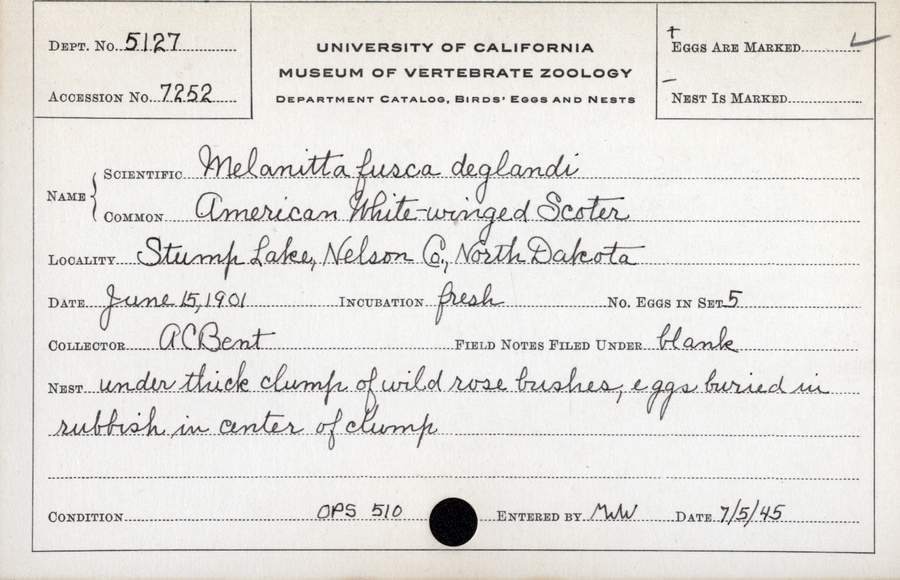 Dept. No. 5127
Accession No. 7252
UNIVERSITY OF CALIFORNIA
MUSEUM OF VERTEBRATE ZOOLOGY
Department Catalog, Birds' Eggs and Nests
Eggs Are Marked ✓
Nest Is Marked
Name { Scientific Melanitta fusca deglandi
Common American White-winged Scoter
Locality Stump Lake, Nelson Co., North Dakota
Date June 15, 1901 Incubation fresh No. Eggs in Set 5
Collector A C Bent Field Notes Filed Under blank
Nest under thick clump of wild rose bushes, eggs buried in
rubbish in center of clump
Condition OPS 510 Entered by Date 7/5/45